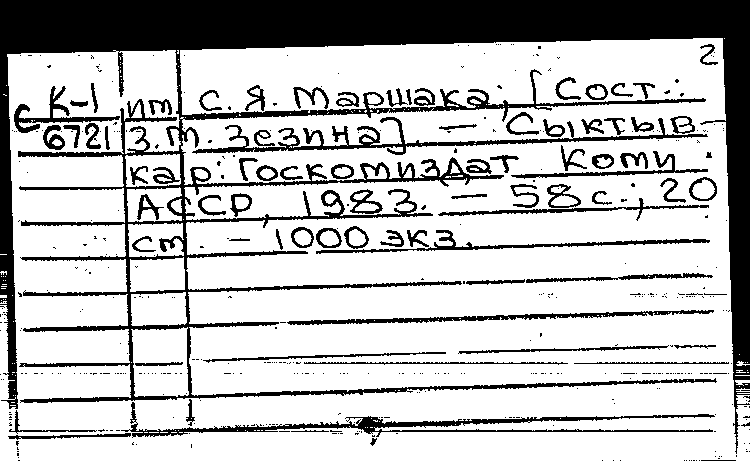 2
К-1 им. С. Я. Маршака; [Сост.:
Є 6721 З. М. Зезина]. — Сыктыв-
кар: Госкомиздат Коми
АССР, 1983. — 58 с.; 20
см. — 1000 экз.